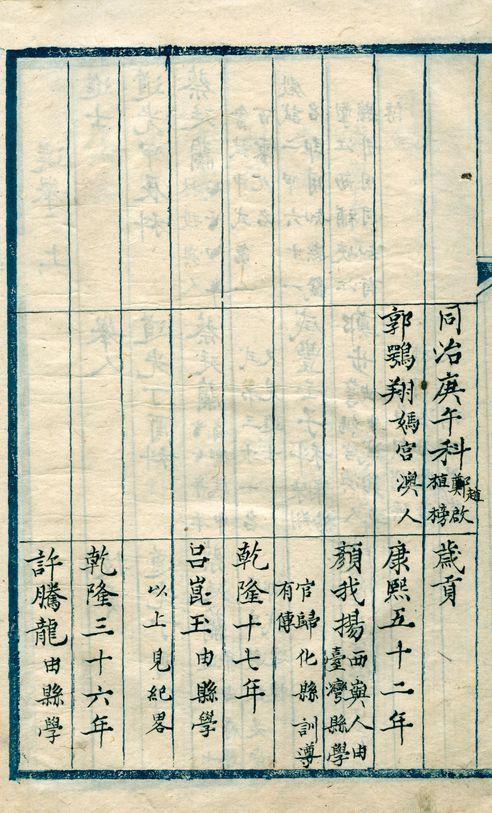 同治庚午科 趙鄭啟
植榜
郭鶚翔媽宮澳人
歲貢
康熙五十二年
顏我揚西嶼人由
臺灣縣學
官歸化縣訓導
有傳
乾隆十七年
呂崑玉由縣學
以上見紀畧
乾隆三十六年
許騰龍由縣學